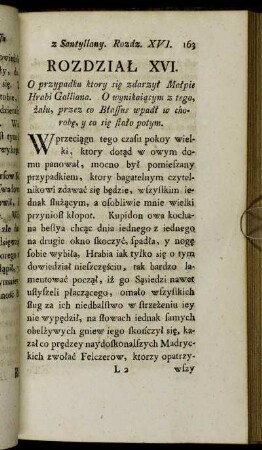 z Santyllany. Rozdz. XVI. 163
ROZDZIAŁ XVI.
O przypadku ktory się zdarzył Małpie
Hrabi Galliana. O wynikaiącym z tego,
żalu, przez co Błażſus wpadł w cho-
robę, y co się ſtało potym.
W przeciągu tego czaſu pokoy wiel-
ki, ktory dotąd w owym do-
mu panował, mocno był pomieſzany
przypadkiem, ktory bagatelnym czytel-
nikowi zdawać się będzie, wſzyſtkim ie-
dnak ſłużącym, a oſobliwie mnie wielki
przynioſł kłopot. Kupidon owa kocha-
na beſtya chcąc dnia iednego z iednego
na drugie okno ſkoczyć, ſpadła, y nogę
ſobie wybiła, Hrabia iak tylko się o tym
dowiedział nieſzczęściu, tak bardzo la-
mentować począł, iż go Sąsiedzi nawet
uſłyſzeli płaczącego, omało wſzyſtkich
ſług za ich niedbalſtwo w ſtrzeżeniu iey
nie wypędził, na ſłowach iednak ſamych
obelżywych gniew iego ſkończył się, ka-
zał co prędzey naydoſkonalſzych Madryc-
kich zwołać Felczerow, ktorzy opatrzy-
L 2 wſzy